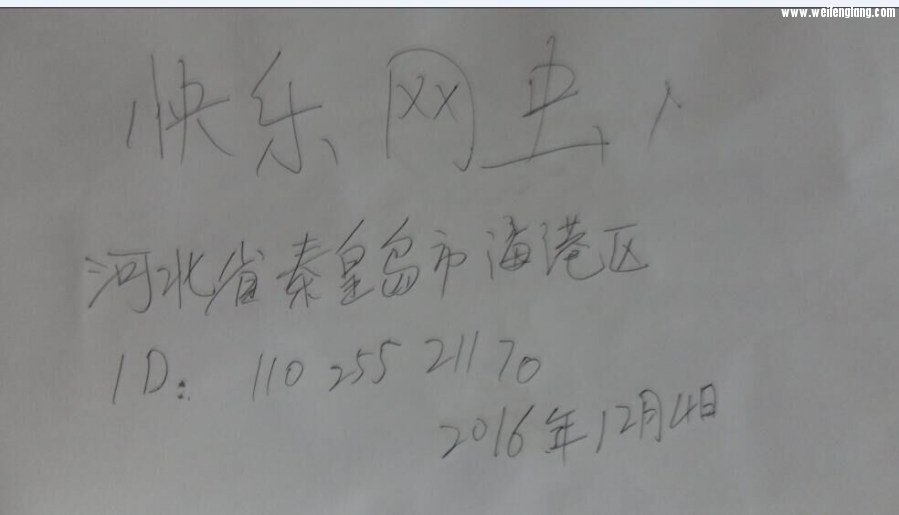 www.weifengtang.com
快乐网虫
河北省秦皇岛市海港区
ID: 110 255 21170
2016年12月4日